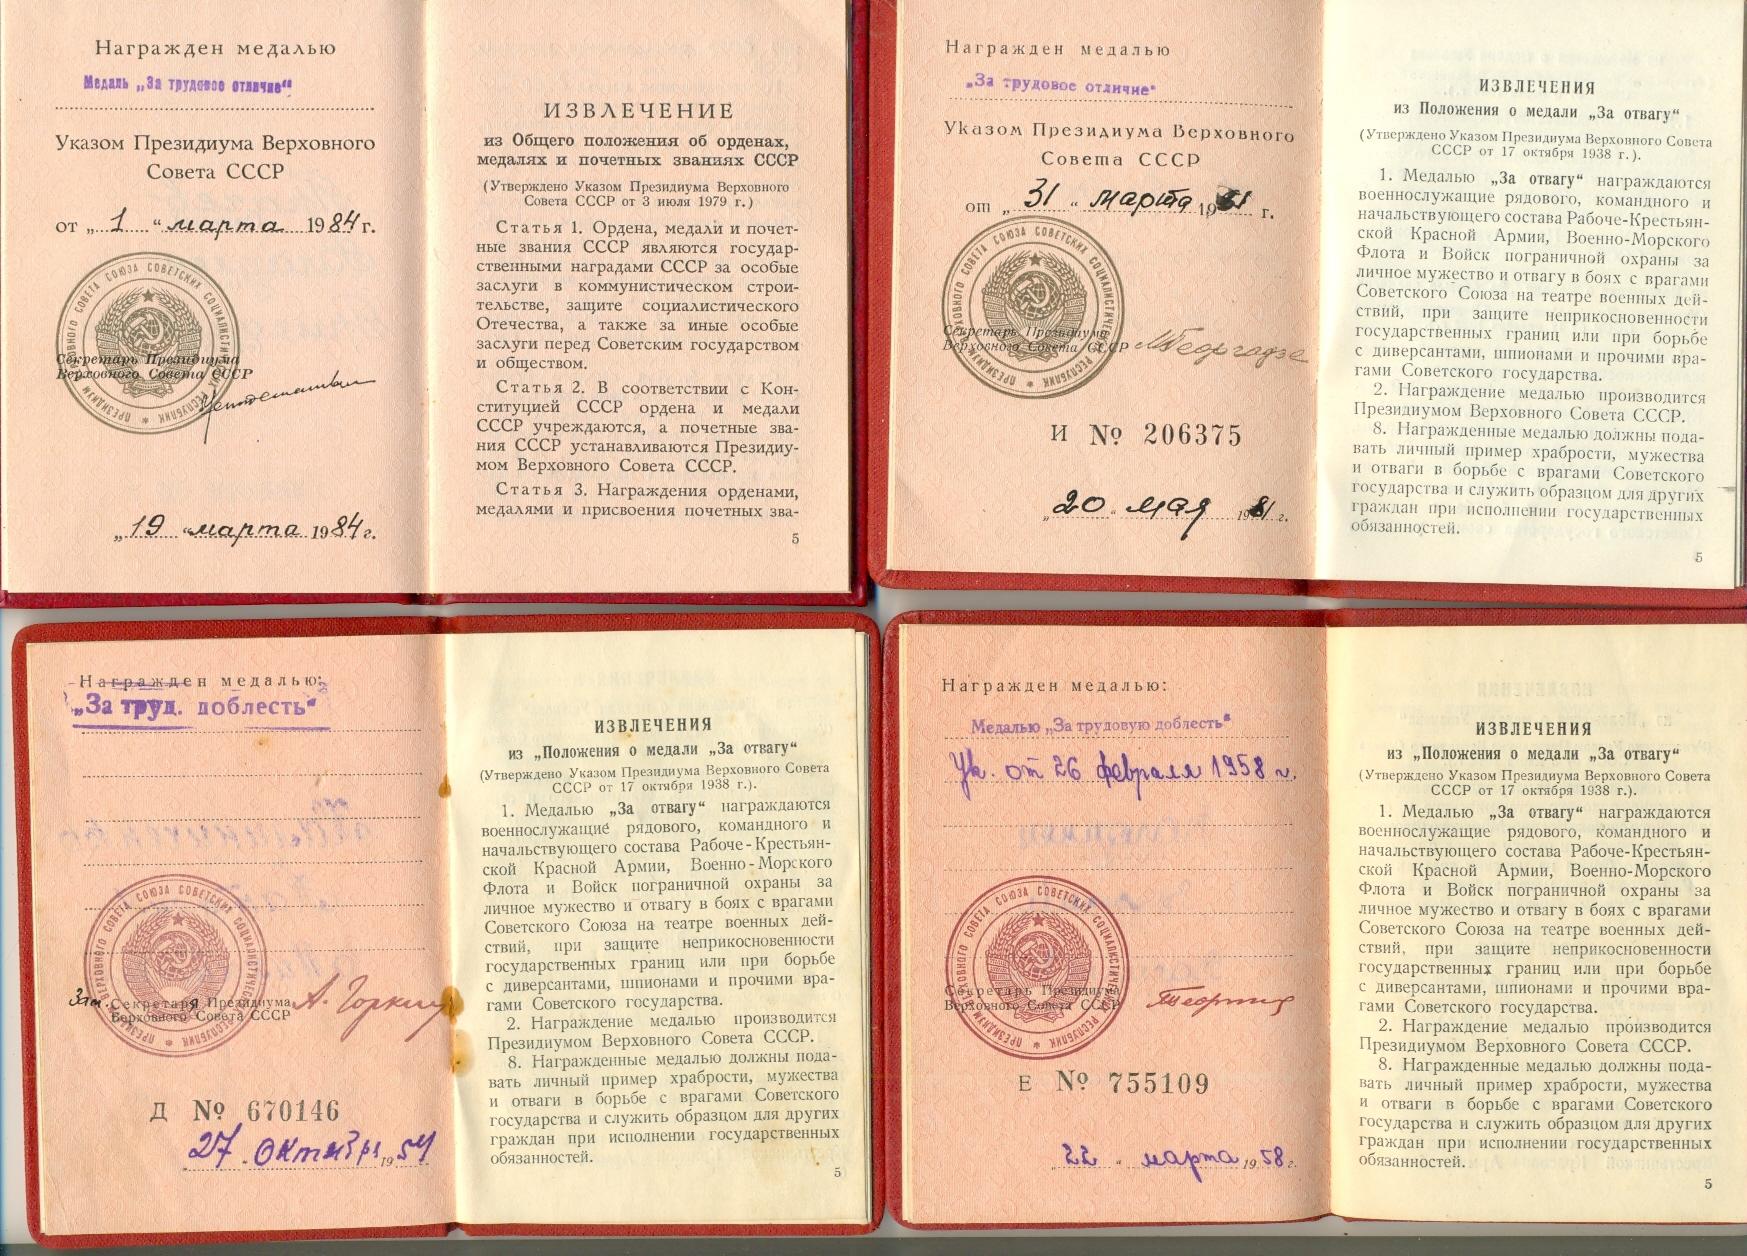 Награжден медалью
Медаль „За трудовое отличие“
Указом Президиума Верховного
Совета СССР
от „ 1 “ марта 1984 г.
ПРЕЗИДИУМ ВЕРХОВНОГО СОВЕТА СОЮЗА СОВЕТСКИХ СОЦИАЛИСТИЧЕСКИХ РЕСПУБЛИК
Секретарь Президиума
Верховного Совета СССР
„ 19 “ марта 1984 г.
ИЗВЛЕЧЕНИЕ
из Общего положения об орденах,
медалях и почетных званиях СССР
(Утверждено Указом Президиума Верховного
Совета СССР от 3 июля 1979 г.)
Статья 1. Ордена, медали и почет-
ные звания СССР являются государ-
ственными наградами СССР за особые
заслуги в коммунистическом строи-
тельстве, защите социалистического
Отечества, а также за иные особые
заслуги перед Советским государством
и обществом.
Статья 2. В соответствии с Кон-
ституцией СССР ордена и медали
СССР учреждаются, а почетные зва-
ния СССР устанавливаются Президиу-
мом Верховного Совета СССР.
Статья 3. Награждения орденами,
медалями и присвоения почетных зва-
5
Награжден медалью
„За трудовое отличие“
Указом Президиума Верховного
Совета СССР
от „ 31 “ марта 1981 г.
ПРЕЗИДИУМ ВЕРХОВНОГО СОВЕТА СОЮЗА СОВЕТСКИХ СОЦИАЛИСТИЧЕСКИХ РЕСПУБЛИК
Секретарь Президиума
Верховного Совета СССР
М. Георгадзе
И № 206375
„ 20 “ мая 1981 г.
ИЗВЛЕЧЕНИЯ
из Положения о медали „За отвагу“
(Утверждено Указом Президиума Верховного Совета
СССР от 17 октября 1938 г.).
1. Медалью „За отвагу“ награждаются
военнослужащие рядового, командного и
начальствующего состава Рабоче-Крестьян-
ской Красной Армии, Военно-Морского
Флота и Войск пограничной охраны за
личное мужество и отвагу в боях с врагами
Советского Союза на театре военных дей-
ствий, при защите неприкосновенности
государственных границ или при борьбе
с диверсантами, шпионами и прочими вра-
гами Советского государства.
2. Награждение медалью производится
Президиумом Верховного Совета СССР.
8. Награжденные медалью должны пода-
вать личный пример храбрости, мужества
и отваги в борьбе с врагами Советского
государства и служить образцом для других
граждан при исполнении государственных
обязанностей.
5
Награжден медалью:
„За труд. доблесть“
ПРЕЗИДИУМ ВЕРХОВНОГО СОВЕТА СОЮЗА СОВЕТСКИХ СОЦИАЛИСТИЧЕСКИХ РЕСПУБЛИК
Зам. Секретаря Президиума
Верховного Совета СССР
А. Горкин
Д № 670146
„ 27 “ октября 1954
ИЗВЛЕЧЕНИЯ
из „Положения о медали „За отвагу“
(Утверждено Указом Президиума Верховного Совета
СССР от 17 октября 1938 г.).
1. Медалью „За отвагу“ награждаются
военнослужащие рядового, командного и
начальствующего состава Рабоче-Крестьян-
ской Красной Армии, Военно-Морского
Флота и Войск пограничной охраны за
личное мужество и отвагу в боях с врагами
Советского Союза на театре военных дей-
ствий, при защите неприкосновенности
государственных границ или при борьбе
с диверсантами, шпионами и прочими вра-
гами Советского государства.
2. Награждение медалью производится
Президиумом Верховного Совета СССР.
8. Награжденные медалью должны пода-
вать личный пример храбрости, мужества
и отваги в борьбе с врагами Советского
государства и служить образцом для других
граждан при исполнении государственных
обязанностей.
5
Награжден медалью:
Медалью „За трудовую доблесть“
Ук. от 26 февраля 1958 г.
ПРЕЗИДИУМ ВЕРХОВНОГО СОВЕТА СОЮЗА СОВЕТСКИХ СОЦИАЛИСТИЧЕСКИХ РЕСПУБЛИК
Секретарь Президиума
Верховного Совета СССР
Е № 755109
„ 22 “ марта 1958 г.
ИЗВЛЕЧЕНИЯ
из „Положения о медали „За отвагу“
(Утверждено Указом Президиума Верховного Совета
СССР от 17 октября 1938 г.).
1. Медалью „За отвагу“ награждаются
военнослужащие рядового, командного и
начальствующего состава Рабоче-Крестьян-
ской Красной Армии, Военно-Морского
Флота и Войск пограничной охраны за
личное мужество и отвагу в боях с врагами
Советского Союза на театре военных дей-
ствий, при защите неприкосновенности
государственных границ или при борьбе
с диверсантами, шпионами и прочими вра-
гами Советского государства.
2. Награждение медалью производится
Президиумом Верховного Совета СССР.
8. Награжденные медалью должны пода-
вать личный пример храбрости, мужества
и отваги в борьбе с врагами Советского
государства и служить образцом для других
граждан при исполнении государственных
обязанностей.
5